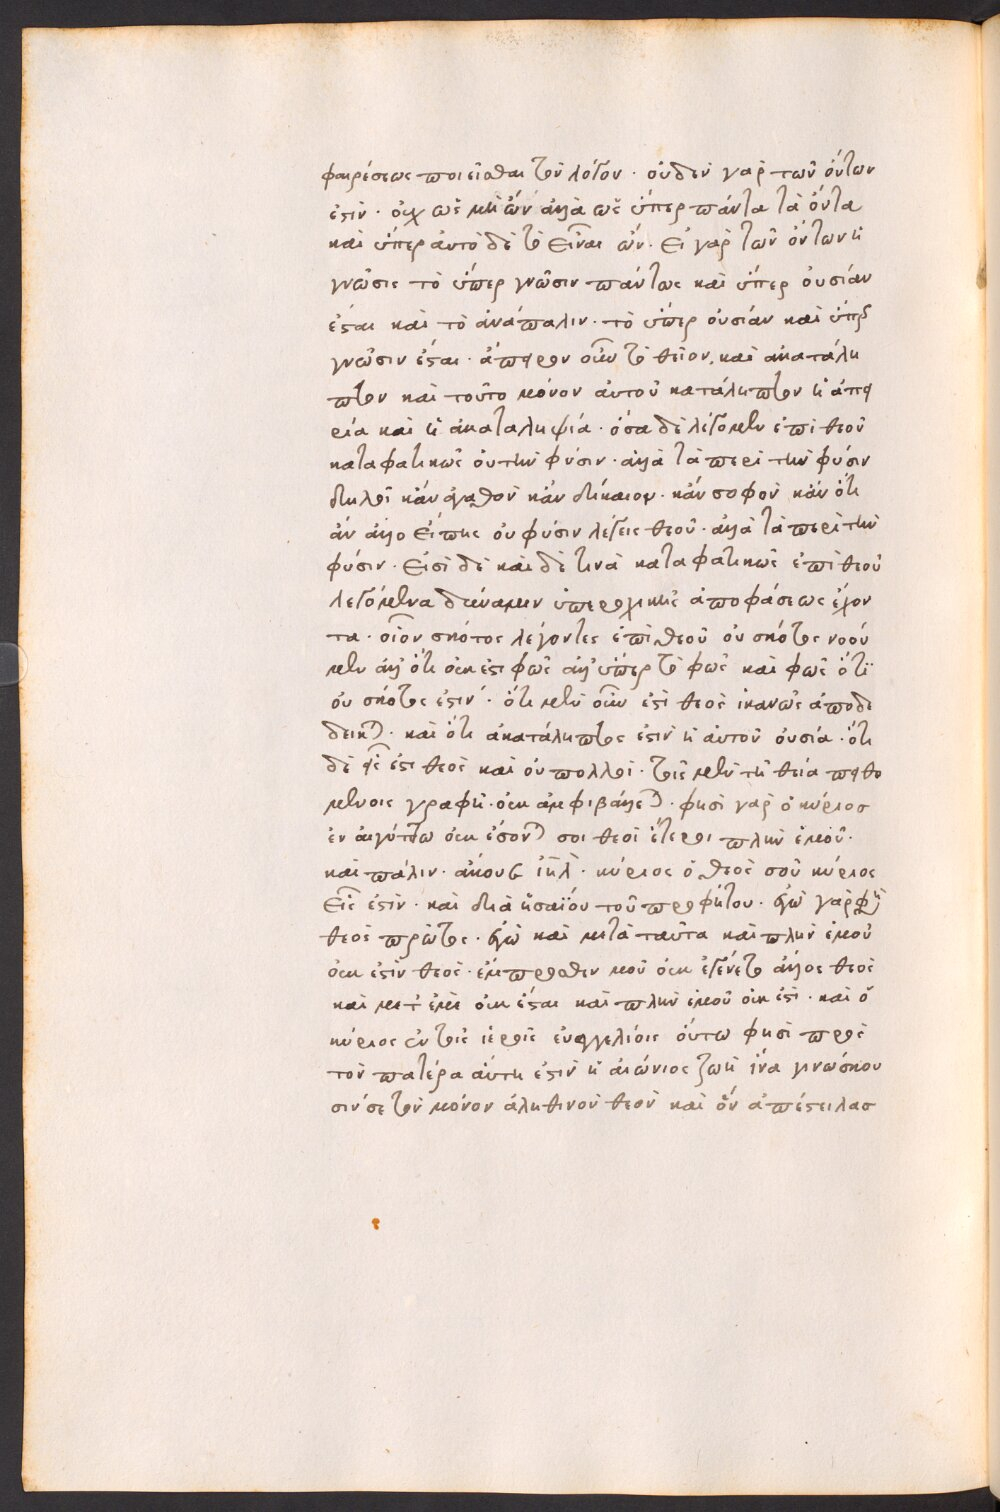 φαιρέσεως ποιεῖσθαι τὸν λόγον · οὐδὲν γὰρ τῶν ὄντων
ἐστὶν · οὐχ ὡς μὴ ὢν ἀλλὰ ὡς ὑπὲρ πάντα τὰ ὄντα
καὶ ὑπὲρ ἀυτὸ δὲ τὸ εἶναι ὤν · Εἰ γὰρ τῶν ὄντων ἡ
γνῶσις τὸ ὑπὲρ γνῶσιν πάντως καὶ ὑπὲρ ὀυσίαν
ἔσται καὶ τὸ ἀνάπαλιν · τὸ ὑπὲρ ὀυσίαν καὶ ὑπὲρ
γνῶσιν ἔσται · ἄπειρον οὖν τὸ θεῖον, καὶ ἀκατάλη
πτον καὶ τοῦτο μόνον ἀυτοῦ κατάληπτον ἡ ἀπει
ρία καὶ ἡ ἀκαταληψία · ὅσα δὲ λέγομεν ἐπὶ θεοῦ
καταφατικῶς ὀυ τὴν φύσιν · ἀλλὰ τὰ περὶ τὴν φύσιν
δηλοῖ κἂν ἀγαθὸν κἂν δίκαιον · κἂν σοφὸν κἂν ὅτι
ἂν ἄλλο εἴπης ὀυ φύσιν λέγεις θεοῦ · ἀλλὰ τὰ περὶ τὴν
φύσιν · Εἰσὶ δὲ καὶ δὲ τινὰ καταφατικῶς ἐπὶ θεοῦ
λεγόμενα δύναμιν ὑπεροχικῆς ἀποφάσεως ἔχον
τα · οἷον σκότος λέγοντες ἐπὶ θεοῦ ὀυ σκότος νοοῦ
μεν ἀλλ' ὅτι ὀυκ ἔστι φῶς ἀλλ' ὑπὲρ τὸ φῶς καὶ φῶς ὅτι
ὀυ σκότος ἐστίν · ὅτι μὲν οὖν ἐστὶ θεὸς ἱκανῶς ἀποδέ
δεικται · καὶ ὅτι ἀκατάληπτος ἐστὶν ἡ ἀυτοῦ ὀυσία · ὅτι
δὲ εἷς ἐστι θεὸς καὶ ὀυ πολλοὶ · τοῖς μὲν τῇ θεία πειθο
μένοις γραφῇ · ὀυκ ἀμφιβάλλεται · φησὶ γὰρ ὁ κύριος
ἐν ἀιγύπτω ὀυκ ἔσονται σοι θεοὶ ἕτεροι πλὴν ἐμοῦ ·
καὶ πάλιν · ἄκουε ἰηλ · κύριος ὁ θεὸς σοῦ κύριος
εἷς ἐστίν · καὶ διὰ ἡσαΐου τοῦ προφήτου · ἐγὼ γὰρ φη
θεὸς πρῶτος · ἐγὼ καὶ μετὰ ταῦτα καὶ πλὴν ἐμοῦ
ὀυκ ἐστὶν θεὸς · ἔμπροσθεν μοῦ ὀυκ ἐγένετο ἄλλος θεὸς
καὶ μετ' ἐμὲ ὀυκ ἔσται καὶ πλὴν ἐμοῦ ὀυκ ἐστι · καὶ ὁ
κύριος ἐν τοῖς ἱεροῖς ἐυαγγελίοις ὅυτω φησὶ πρὸς
τὸν πατέρα ἅυτη ἐστὶν ἡ ἀιώνιος ζωὴ ἵνα γινώσκου
σίν σε τὸν μόνον ἀληθινὸν θεὸν καὶ ὃν ἀπέστειλας